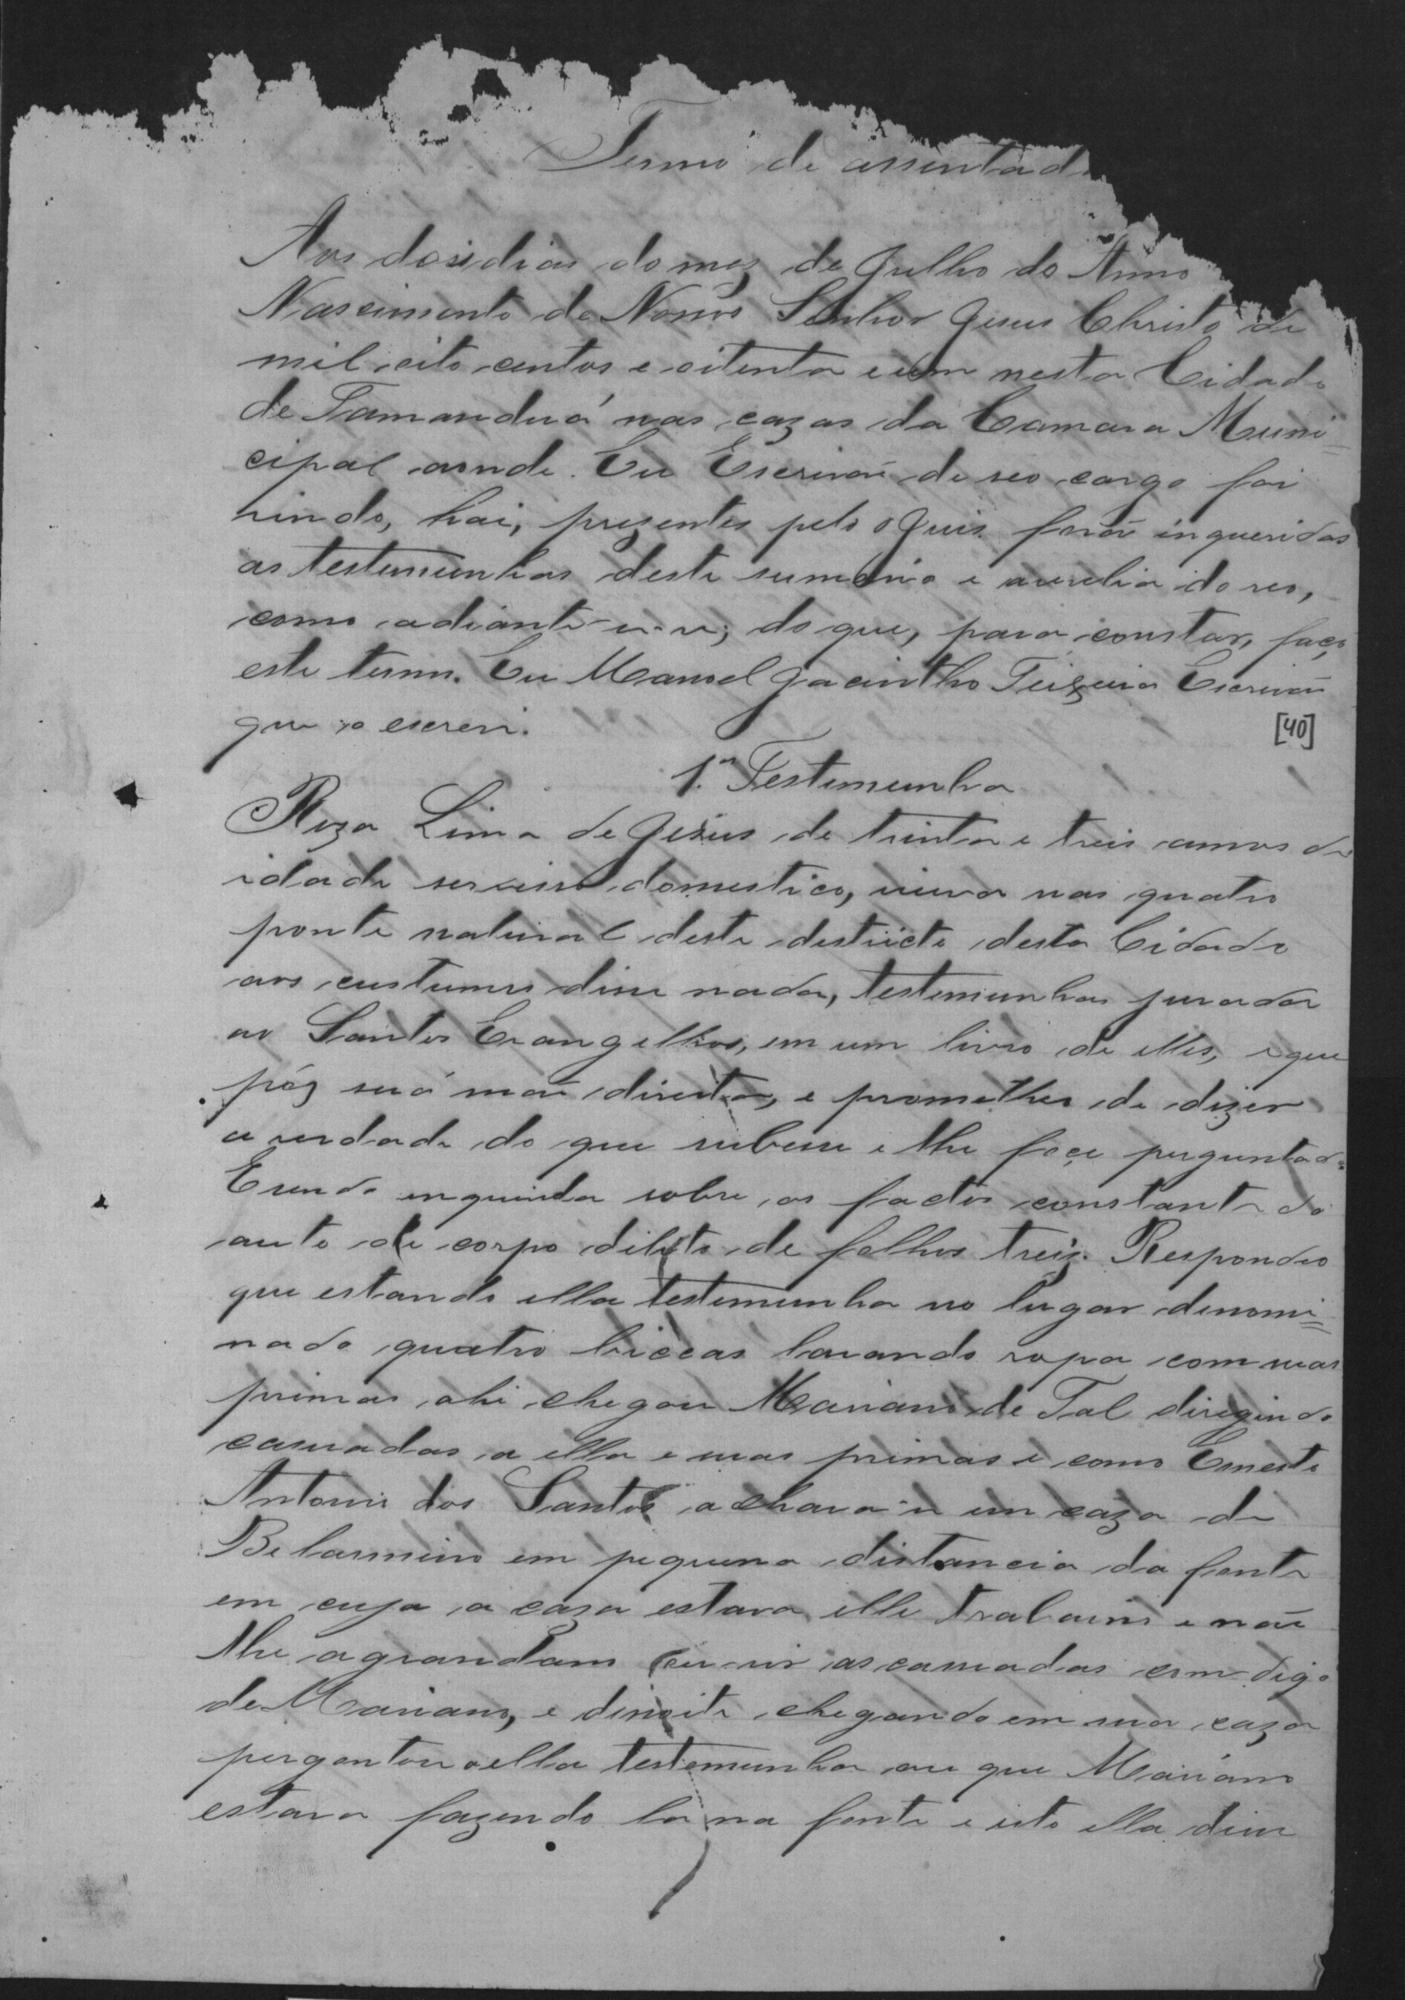 Termo de assentad
Aos dosidias do mez de Julho do Anno
Nascimento de Nosso Senhor Jesus Christo de
mil oito centos e oitenta e um nesta Cidade
de Tamanduá nas cazas da Camara Muni=
cipal aonde Eu Escrivaõ de seo cargo foi
vindo, hai, prezentes pelo o Juis foraõ inqueridas
as testemunhas deste sumario e do reo,
como adiante se ve; do que, para constar, faço
este termo. Eu Manoel Jacintho Teixeira Escrivaõ
que o escrevi.
[40]
1.a Testemunha
Roza Lima de Jesus de trinta e treis annos de
idade servisso domestico, viuva nas quatro
ponte natural deste destricto desta Cidade
aos custumes disse nada, testemunhas jurada
ao Santos Evangelhos, em um livro de elles, e que
pôz suá maõ direita, e prometheo de dizer
a verdade do que subesse e lhe foçe perguntado
E sendo inquerida sobre os factos constante do
auto de corpo delicto de folhas treis. Respondeo
que estando ella testemunha no lugar denomi=
nado quatro biccas lavando ropa com suas
primas ahi chegou Mariano de Tal diregindo
cassuadas a ella e suas primas e como Ernesto
Antonio dos Santos achava se em caza de
Belarmino em pequena distancia da fonte
em cuja a caza estava elle trabaino e naõ
lhe agrandam ouvir as cassuadas com digo
de Mariano, e denoite chegando em sua caza
pergontou a ella testemunha au que Mariano
estava fazendo la na fonte e isto ella disse